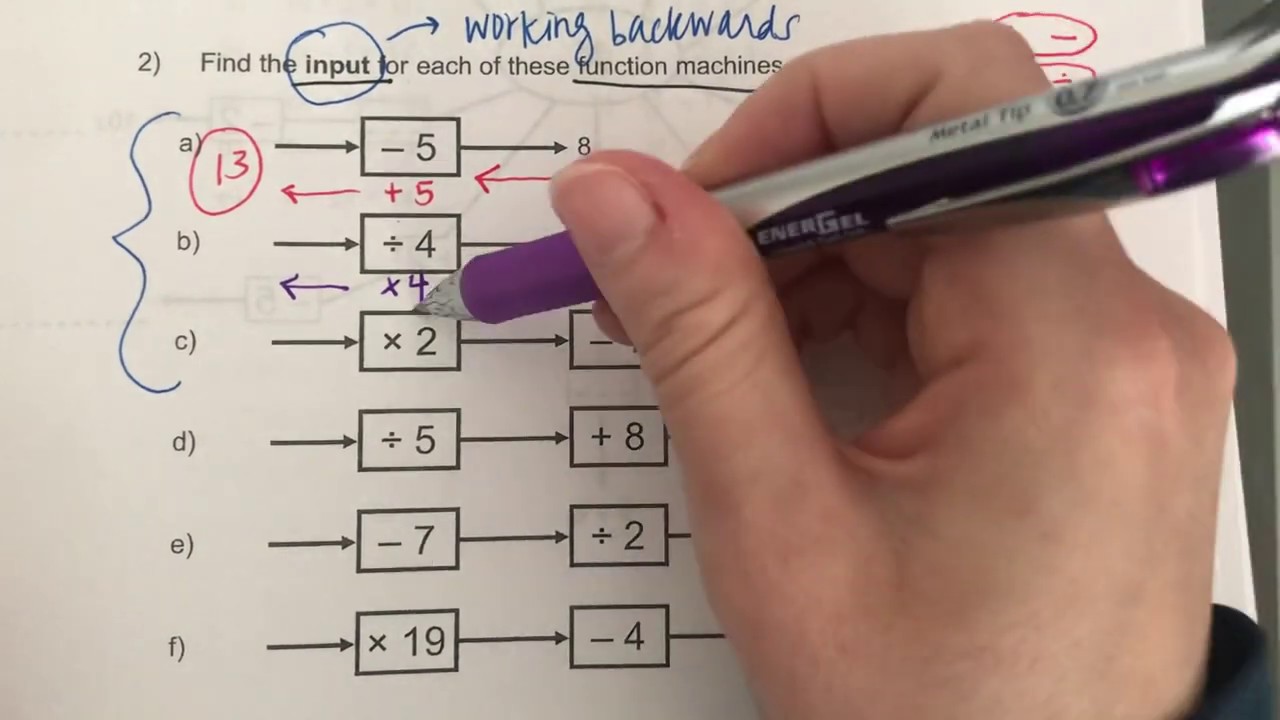 working backwards
2) Find the input for each of these function machines
−
÷
a) 13 − 5 8
+ 5
b) ÷ 4
× 4
c) × 2 −
d) ÷ 5 + 8
e) − 7 ÷ 2
f) × 19 − 4
Metal Tip 0.7
ENERGEL